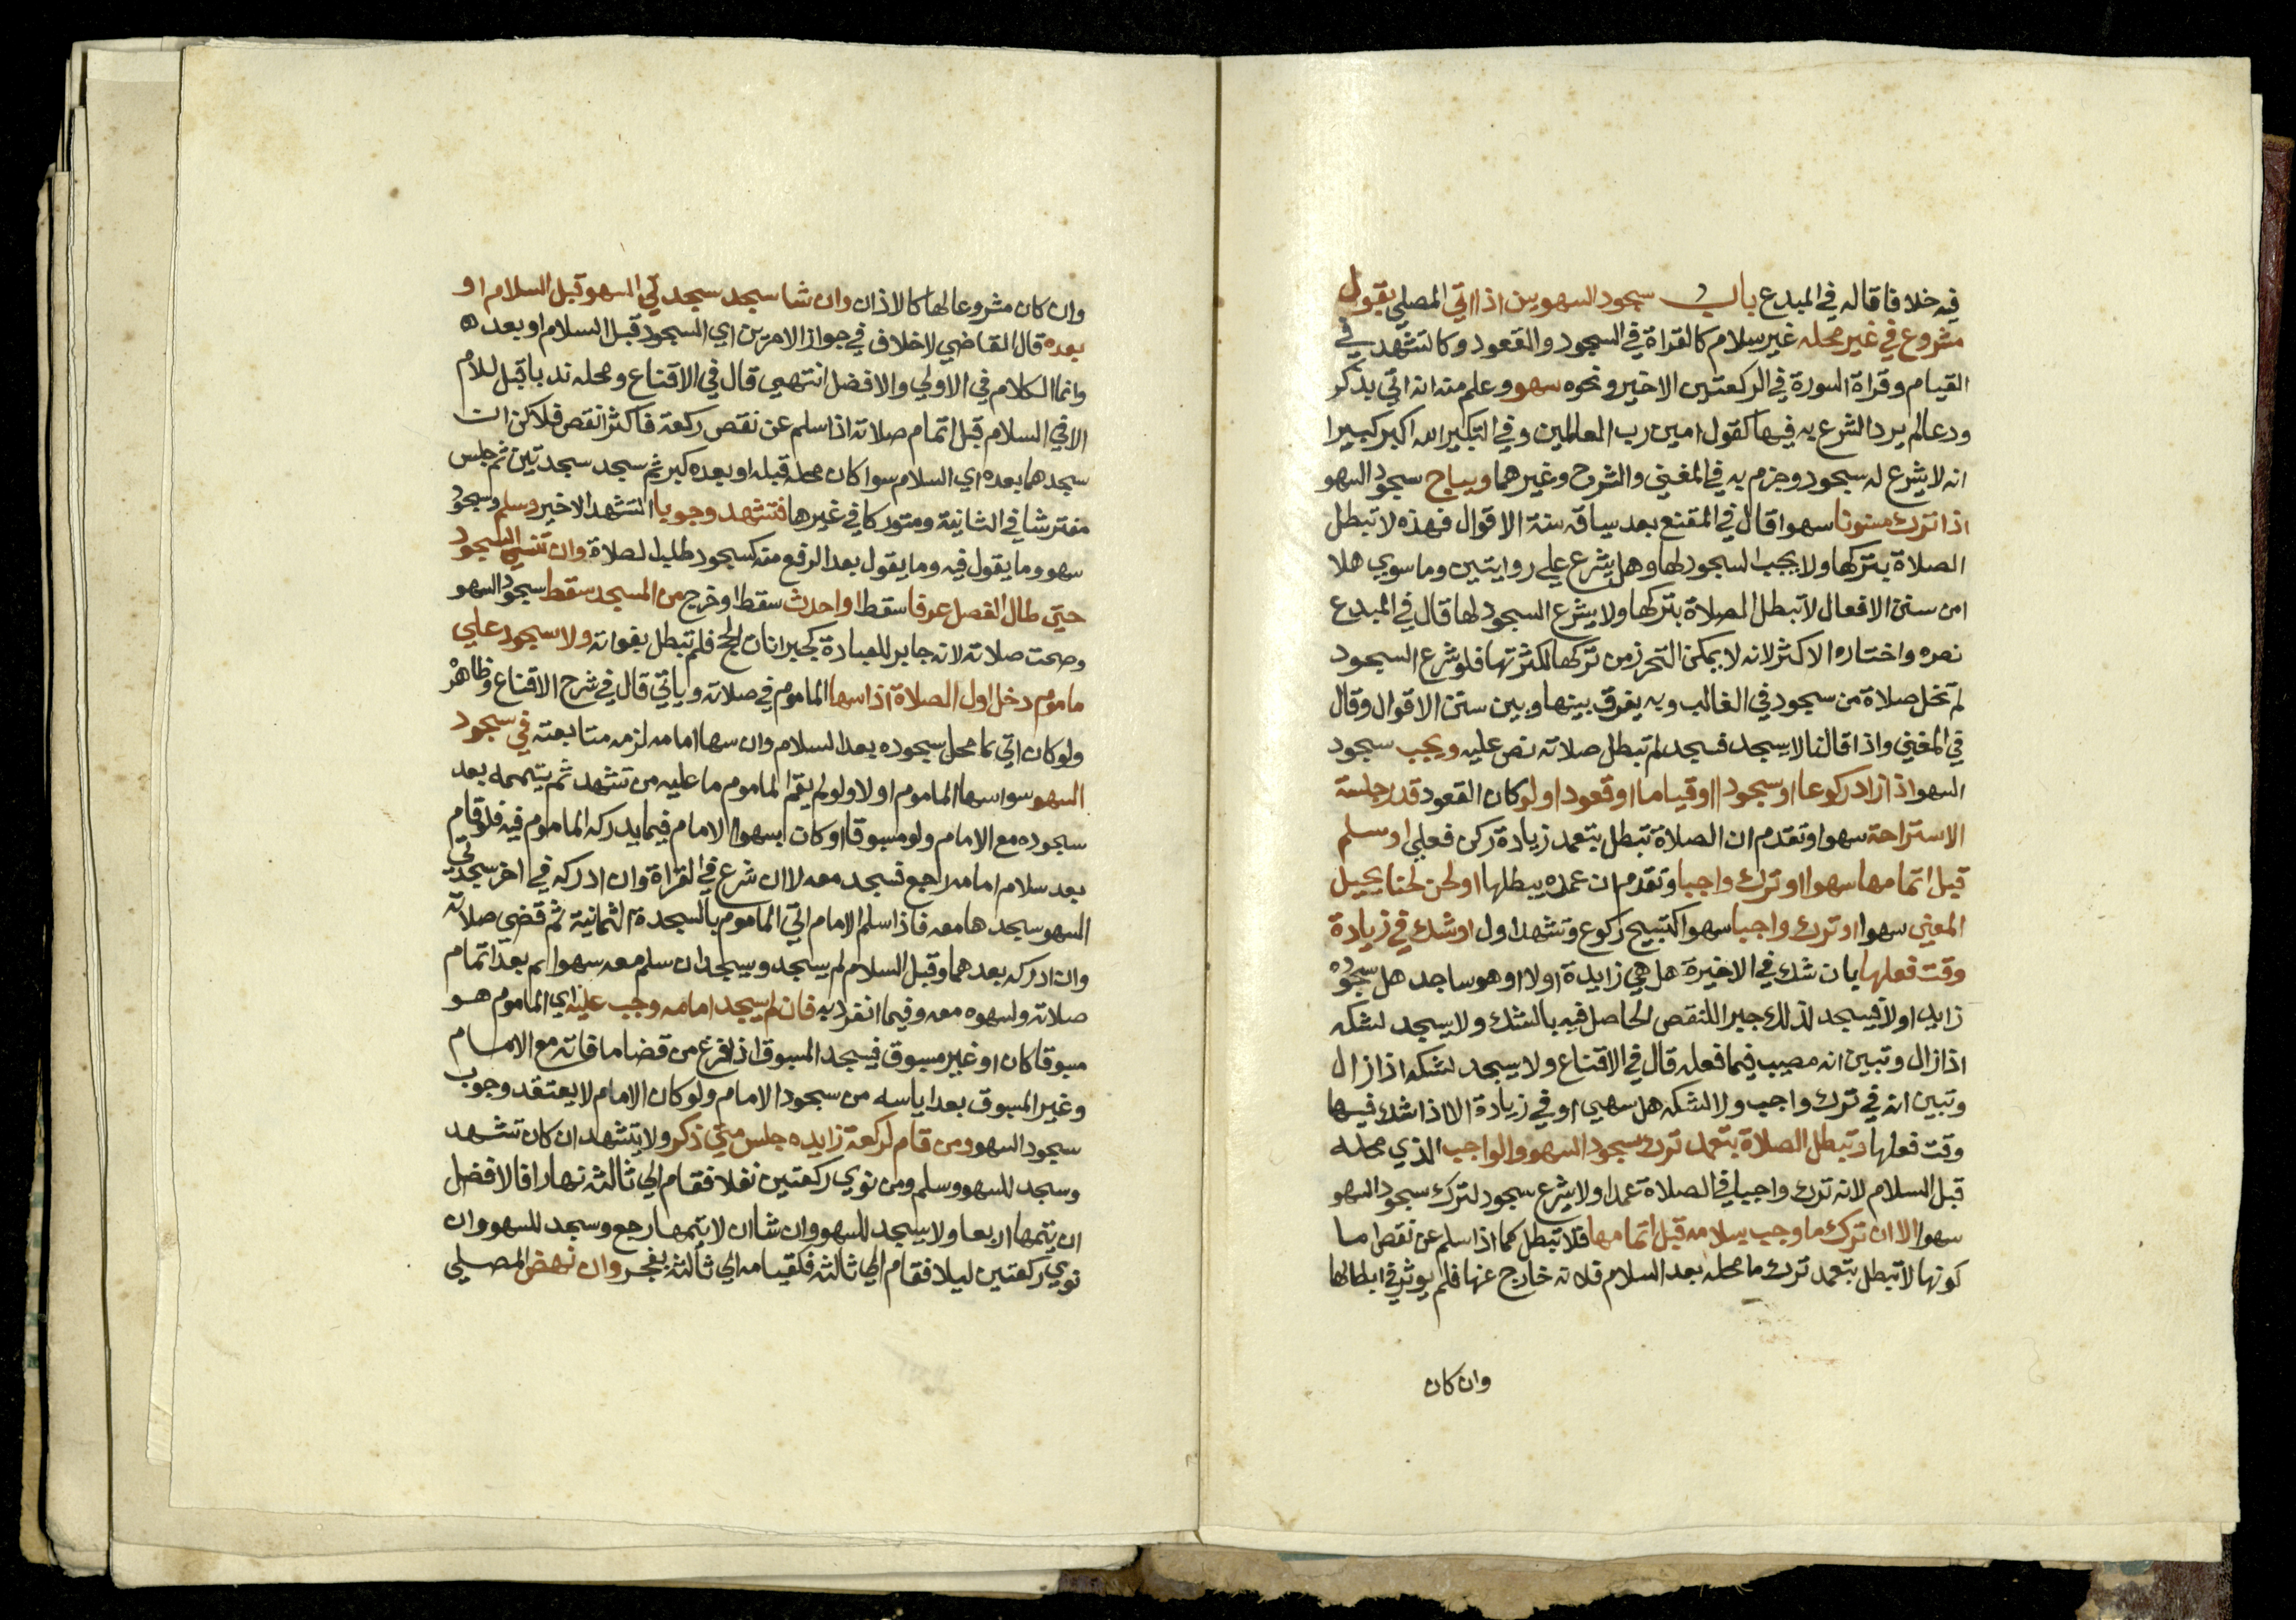 فيه خلافا قاله في المبدع باب سجود السهو يسن اذا اتي المصلي بقول
مشروع في غير محله غير سلام كالقراة في السجود والقعود وكالتشهد في
القيام وقراة السورة في الركعتين الاخير ونحوه سهو وعلم منه انه اتي بذكر
ودعا لم يرد الشرع به فيها كقول امين رب العالمين وفي التكبير الله اكبر كبيرا
انه لا يشرع له سجود وجزم به في المغني والشرح وغيرهما ويباح سجود السهو
اذا ترك مسنونا سهوا قال في المقنع بعد سياقه سنة الاقوال فهذه لا تبطل
الصلاة بتركها ولا يجب السجود لها وهل يشرع علي روايتين وما سوي هلا
امن سنن الافعال لا تبطل الصلاة بتركها ولا يشرع السجود لها قال في المبدع
نصره واختاره الاكثر لانه لا يمكن التحرز من تركها لكثرتها فلو شرع السجود
لم تخل صلاة من سجود في الغالب وبه يفرق بينها وبين سنن الاقوال وقال
في المغني واذا قالنا لا يسجد فسجد لم تبطل صلاته نص عليه ويجب سجود
السهو اذ ازاد ركوعا او سجودا او قياما او قعودا ولو كان القعود قدر جلسة
الاستراحة سهوا وتقدم ان الصلاة تبطل بتعمد زيادة ركن فعلي او سلم
قبل اتمامها سهوا او ترك واجبا وتقدم ان عمده يبطلها او لحن لحنا يحيل
المعني سهوا او ترك واجبا سهوا كتسبيح ركوع وتشهد اول او شك في زيادة
وقت فعلها بان شك في الاخيرة هل هي زايدة او لا او هو ساجد هل سجوده
زايد او لا فيسجد لذلك جبرا للنقص الحاصل فيه بالشك ولا يسجد لشكه
اذا زال وتبين انه مصيب فيما فعله قال في الاقناع ولا يسجد لشكه اذا زال
وتبين انه في ترك واجب ولا لشكه هل سهي او في زيادة الا اذا شك فيها
وقت فعلها وتبطل الصلاة بتعمد ترك سجود السهو والواجب الذي محله
قبل السلام لانه ترك واجبا في الصلاة عمدا ولا يشرع سجود لترك سجود السهو
سهوا الا ان ترك ما وجب بسلامه قبل اتمامها فلا تبطل كما اذا سلم عن نقص اما
كونها لا تبطل بتعمد ترك ما محله بعد السلام فلانه خارج عنها فلم يوثر في ابطالها
وان كان
وان كان مشروعا لها كالاذان وان شا سجد سجدتي السهو قبل السلام او
بعده قال القاضي لا خلاف في جواز الامرين اي السجود قبل السلام او بعده
وانما الكلام في الاولي والافضل انتهي قال في الاقناع ومحله ندبا قبل للام
الا في السلام قبل اتمام صلاته اذا سلم عن نقص ركعة فاكثر انقص فلا كن ان
سجدهما بعده اي السلام سوا كان محله قبله او بعده كبر ثم سجد سجدتين ثم جلس
مفترشا في الثانية ومتوركا في غيرها فتشهد وجوبا التشهد الاخير وسلم وسجود
سهو وما يقول فيه وما يقول بعد الرفع منه كسجود صلب الصلاة وان نسي السجود
حتي طال الفصل عرفا سقط او احدث سقط او خرج من المسجد سقط سجود السهو
وصحت صلاته لانه جابر للعبادة كجبرانات الحج فلم تبطل بفواته ولا سجود علي
ماموم دخل اول الصلاة اذا سها الماموم في صلاته وياتي قال في شرح الاقناع وظاهر
ولو كان اتي بما محل سجوده بعد السلام وان سها امامه لزمه متابعته في سجود
السهو سوا سها الماموم او لا ولو لم يتم الماموم ما عليه من تشهد ثم يتممه بعد
سجوده مع الامام ولو مسبوقا او كان سهوا الامام فيما يدركه الماموم فيه فلو قام
بعد سلام امامه رجع فسجد معه لا ان شرع في القراة وان ادركه في اخر سجدتي
السهو سجدها معه فاذا سلم الامام اتي الماموم بالسجدة الثانية ثم قضي صلاته
وان ادركه بعدهما وقبل السلام لم يسجد وسيجد ان سلم معه سهوا ثم بعد اتمام
صلاته ولسهوه معه وفيما انفرد به فان لم يسجد امامه وجب عليه اي الماموم هو
مسبوقا كان او غير مسبوق فيسجد المسبوق اذا فرغ من قضا ما فاته مع الامام
وغير المسبوق بعد اياسه من سجود الامام ولو كان الامام لا يعتقد وجوب
سجود السهو ومن قام لركعة زايده جلس متي ذكر ولا يتشهد ان كان تشهد
وسجد للسهو وسلم ومن نوي ركعتين نفلا فقام الي ثالثة نهارا فالافضل
ان يتمها اربعا ولا يسجد للسهو وان شا ان لا يتمها رجع وسجد للسهو وان
نوي ركعتين ليلا فقام الي ثالثة فكقيامه الي ثالثة بفجر وان نهض المصلي